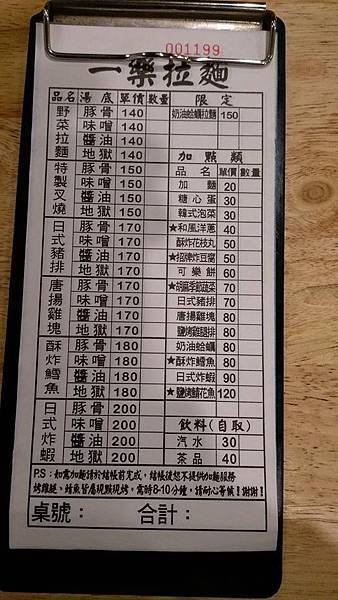 001199
一樂拉麵
品名 湯底 單價 數量 限定
野菜拉麵 豚骨 140 奶油蛤蠣拉麵 150
味噌 140
醬油 140
地獄 140 加點類
特製叉燒 豚骨 150 品名 單價 數量
味噌 150 加麵 20
醬油 150 糖心蛋 30
地獄 150 韓式泡菜 30
日式豬排 豚骨 170 ★和風洋蔥 40
味噌 170 酥炸花枝丸 50
醬油 170 ★招牌炸豆腐 50
地獄 170 可樂餅 60
唐揚雞塊 豚骨 170 ★胡麻季節蔬菜 70
味噌 170 日式豬排 70
醬油 170 唐揚雞塊 80
地獄 170 鹽烤雞腿排 80
酥炸鱈魚 豚骨 180 奶油蛤蠣 80
味噌 180 ★酥炸鱈魚 80
醬油 180 日式炸蝦 90
地獄 180 ★鹽烤鯖花魚 120
日式炸蝦 豚骨 200
味噌 200 飲料(自取)
醬油 200 汽水 30
地獄 200 茶品 40
P.S：如需加麵請於結帳前完成，結帳後恕不提供加麵服務
烤雞腿、鯖魚皆屬現點現烤，需時8-10分鐘，請耐心等候！謝謝！
桌號： 合計：